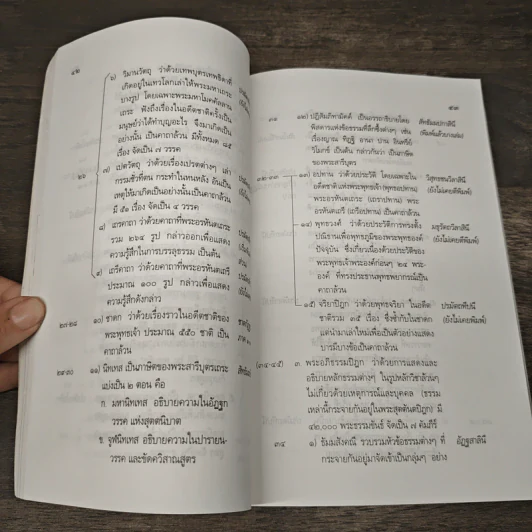 ๔๒
๖) วิมานวัตถุ ว่าด้วยเทพบุตรเทพธิดาที่
เกิดอยู่ในเทวโลกเล่าให้พระมหาเถระ
บางรูป โดยเฉพาะพระมหาโมคคัลลาน
เถระ ฟังถึงเรื่องในอดีตชาติครั้งเป็น
มนุษย์ว่าได้ทำบุญอะไร จึงมาเกิดเป็น
อย่างนั้น เป็นคาถาล้วน มีทั้งหมด ๘๕
เรื่อง จัดเป็น ๗ วรรค
๗) เปตวัตถุ ว่าด้วยเรื่องเปรตต่างๆ เล่า
กรรมชั่วที่ตน กระทำในหนหลัง อันเป็น
เหตุให้มาเกิดเป็นอย่างนั้นเป็นคาถาล้วน
มี ๕๑ เรื่อง จัดเป็น ๔ วรรค
๘) เถรคาถา ว่าด้วยคาถาที่พระอรหันตเถระ
รวม ๒๖๔ รูป กล่าวออกเพื่อแสดง
ความรู้สึกในการบรรลุธรรม เป็นต้น
๙) เถรีคาถา ว่าด้วยคาถาที่พระอรหันตเถรี
ประมาณ ๑๐๐ รูป กล่าวเพื่อแสดง
ความรู้สึกดังกล่าว
๒๗-๒๘ ๑๐) ชาดก ว่าด้วยเรื่องราวในอดีตชาติของ
พระพุทธเจ้า ประมาณ ๕๕๐ ชาติ เป็น
คาถาล้วน
๒๙-๓๐ ๑๑) นิทเทส เป็นภาษิตของพระสารีบุตรเถระ
แบ่งเป็น ๒ ตอน คือ
ก. มหานิทเทส อธิบายความในอัฏฐก
วรรค แห่งสุตตนิบาต
ข. จูฬนิทเทส อธิบายความในปารายน-
วรรค และขัคควิสาณสูตร
๔๓
๓๑ ๑๒) ปฏิสัมภิทามัคค์ เป็นการอธิบายโดย สัทธัมมปกาสินี
พิสดารแห่งข้อธรรมที่ลึกซึ้งต่างๆ เช่น
เรื่องญาณ ทิฏฐิ อานาปาน อินทรีย์
วิโมกข์ เป็นต้น กล่าวกันว่า เป็นภาษิต
ของพระสารีบุตร
๓๒-๓๓ ๑๓) อปทาน ว่าด้วยประวัติ โดยเฉพาะใน วิสุทธชนวิลาสินี
อดีตชาติแห่งพระพุทธเจ้า (พุทธอปทาน) (ยังไม่เคยตีพิมพ์)
พระอรหันตเถระ (เถราปทาน) พระ
อรหันตเถรี (เถรีอปทาน) เป็นคาถาล้วน
๑๔) พุทธวงศ์ ว่าด้วยประวัติการทรงตั้ง มธุรัตถวิลาสินี
ปณิธานเพื่อพุทธภูมิของพระพุทธองค์ (ยังไม่เคยตีพิมพ์)
ปัจจุบัน ซึ่งเกี่ยวเนื่องด้วยประวัติของ
พระพุทธเจ้าพระองค์ก่อนๆ ๒๔ พระ-
องค์ ที่ทรงประทานพุทธพยากรณ์เป็น
คาถาล้วน
๑๕) จริยาปิฎก ว่าด้วยพุทธจริยา ในอดีต ปรมัตถทีปนี
ชาติรวม ๓๕ เรื่อง ซึ่งซ้ำกับในชาดก (ยังไม่เคยตีพิมพ์)
แต่นำมาเล่าใหม่เพื่อเป็นตัวอย่างแสดง
บารมีบางข้อเป็นคาถาล้วน
(๓๔-๔๕) ๓. พระอภิธรรมปิฎก ว่าด้วยการแสดงและ
อธิบายหลักธรรมต่างๆ ในรูปหลักวิชาล้วนๆ
ไม่เกี่ยวด้วยเหตุการณ์และบุคคล (ธรรม
เหล่านี้กระจายกันอยู่ในพระสุตตันตปิฎก) มี
๔๒,๐๐๐ พระธรรมขันธ์ จัดเป็น ๗ คัมภีร์
๓๔ ๑) ธัมมสังคณี รวบรวมหัวข้อธรรมต่างๆ ที่ อัฏฐสาลินี
กระจายกันอยู่มาจัดเข้าเป็นกลุ่มๆ อย่าง